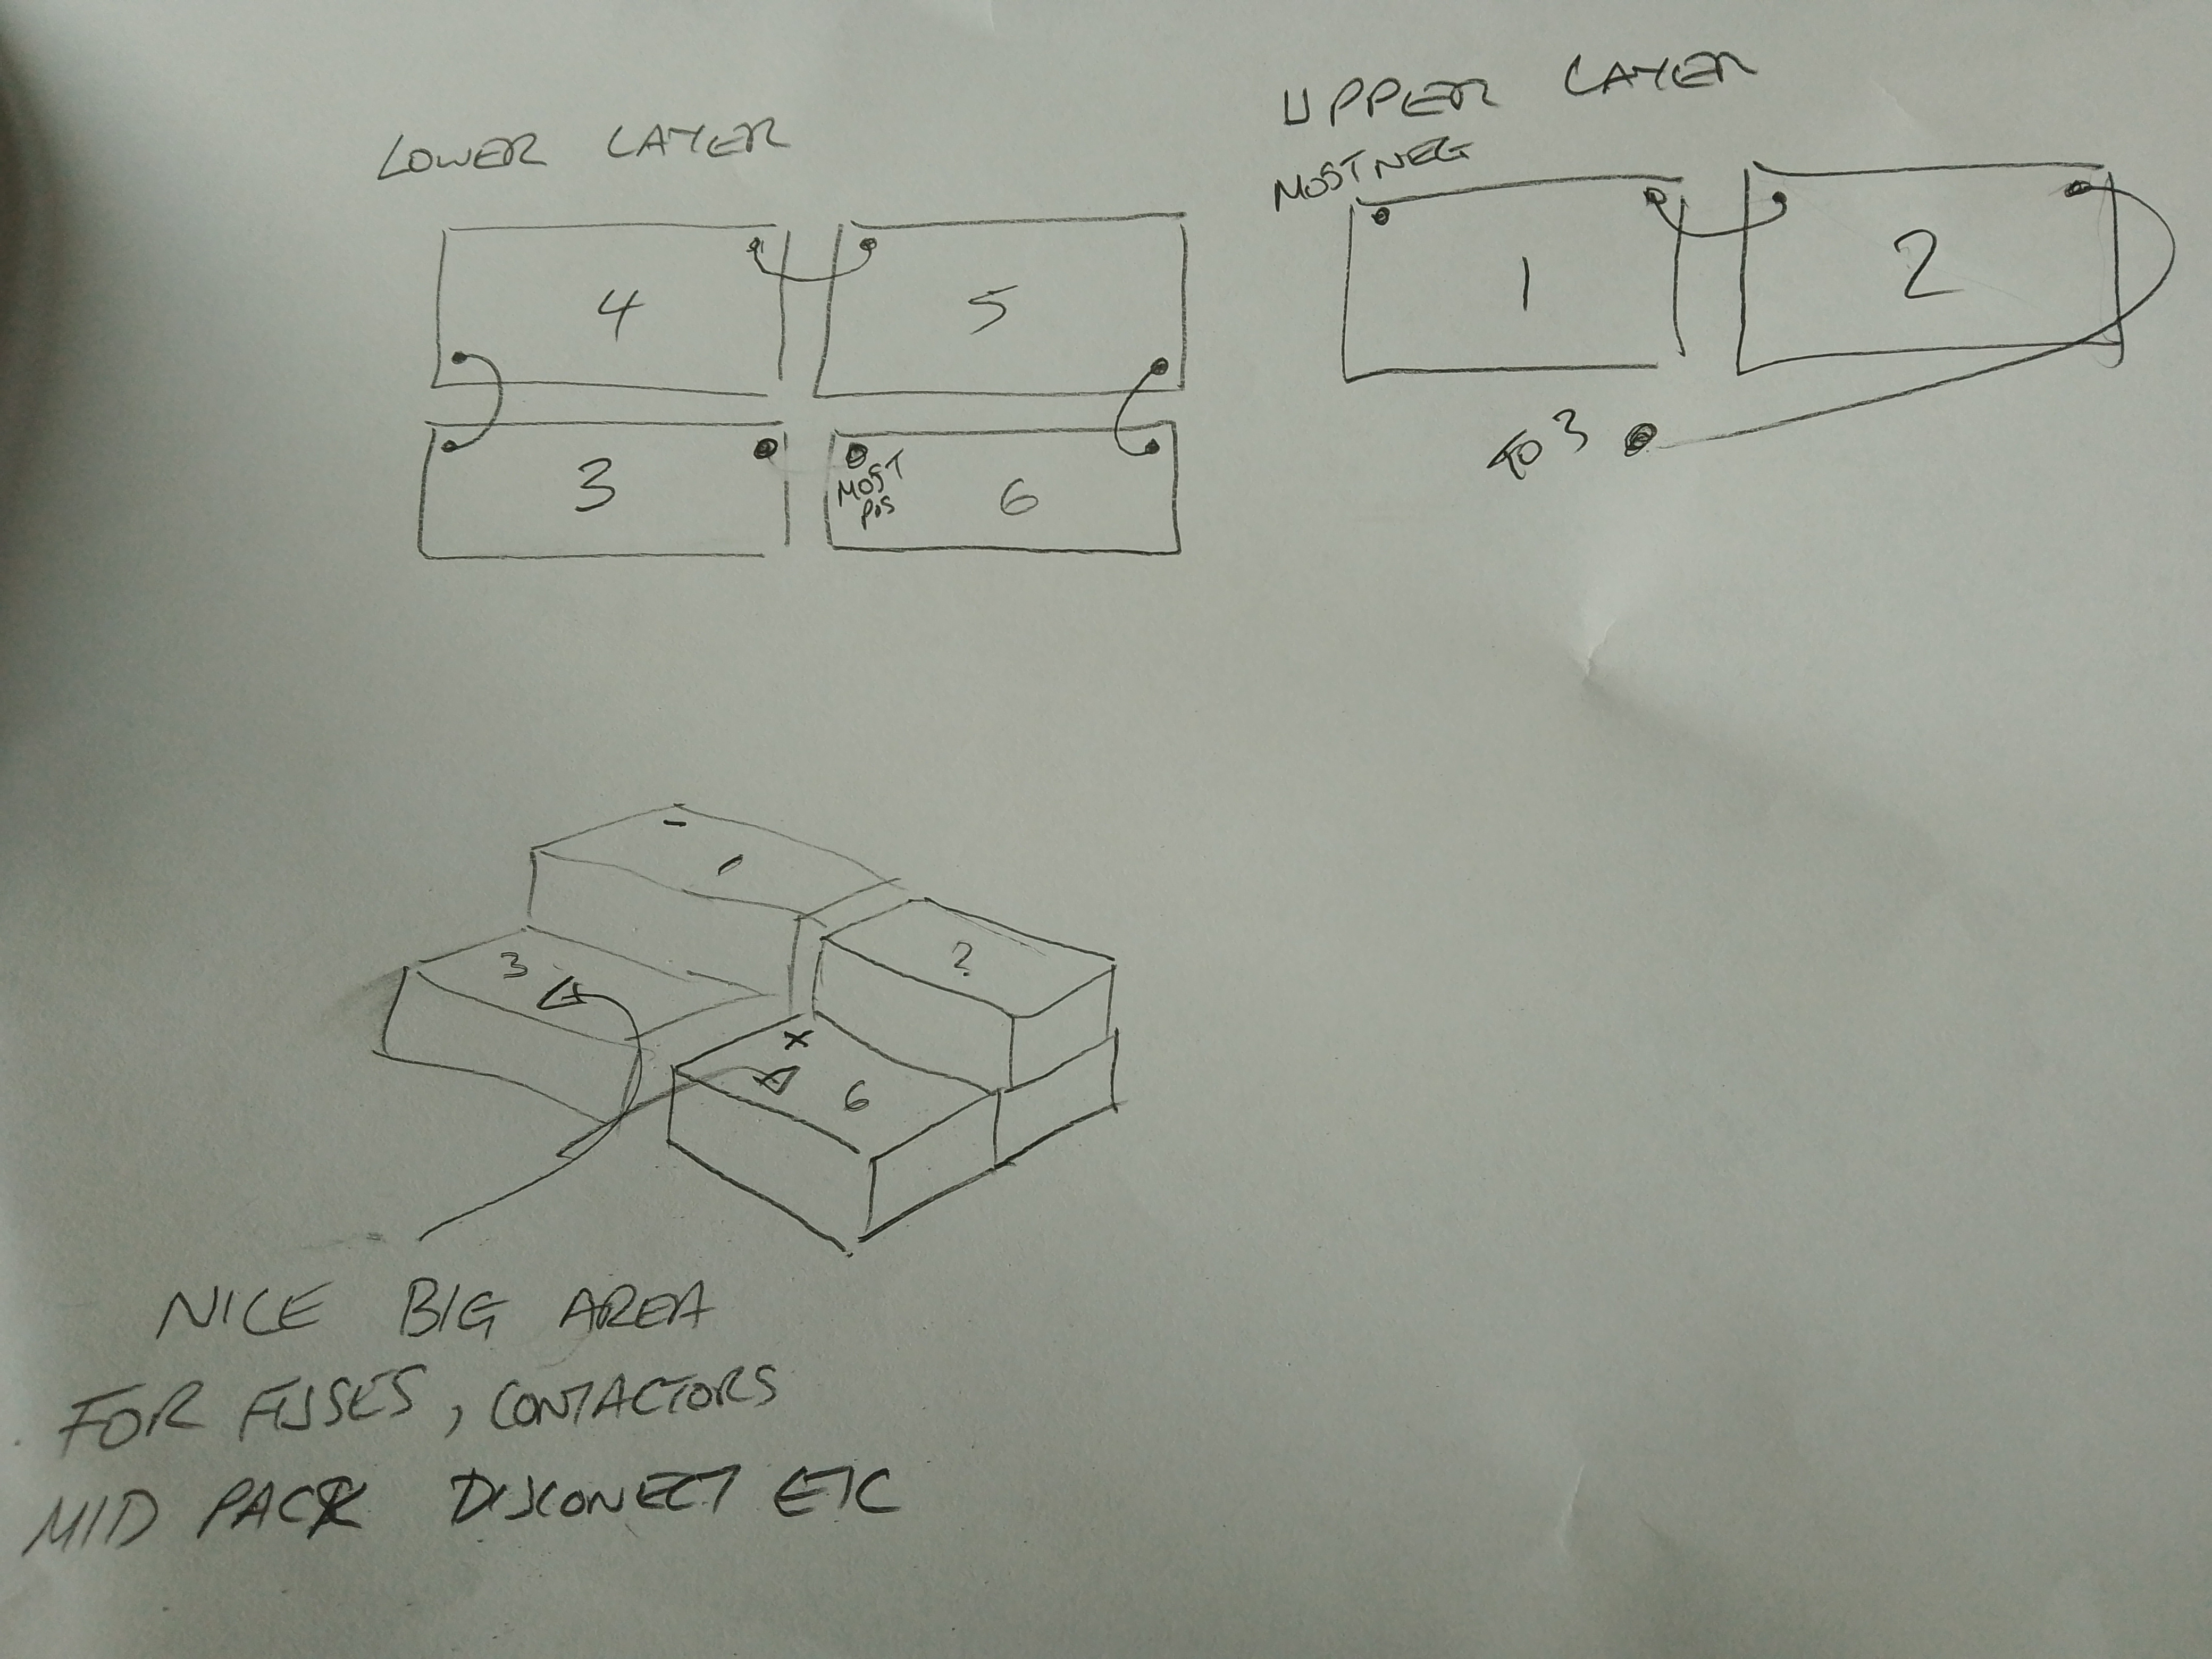 LOWER LAYER
4
5
3
MOST
POS
6
UPPER LAYER
MOST NEG
1
2
TO 3
-
1
2
3
+
6
NICE BIG AREA
FOR FUSES, CONTACTORS
MID PACK DISCONECT ETC